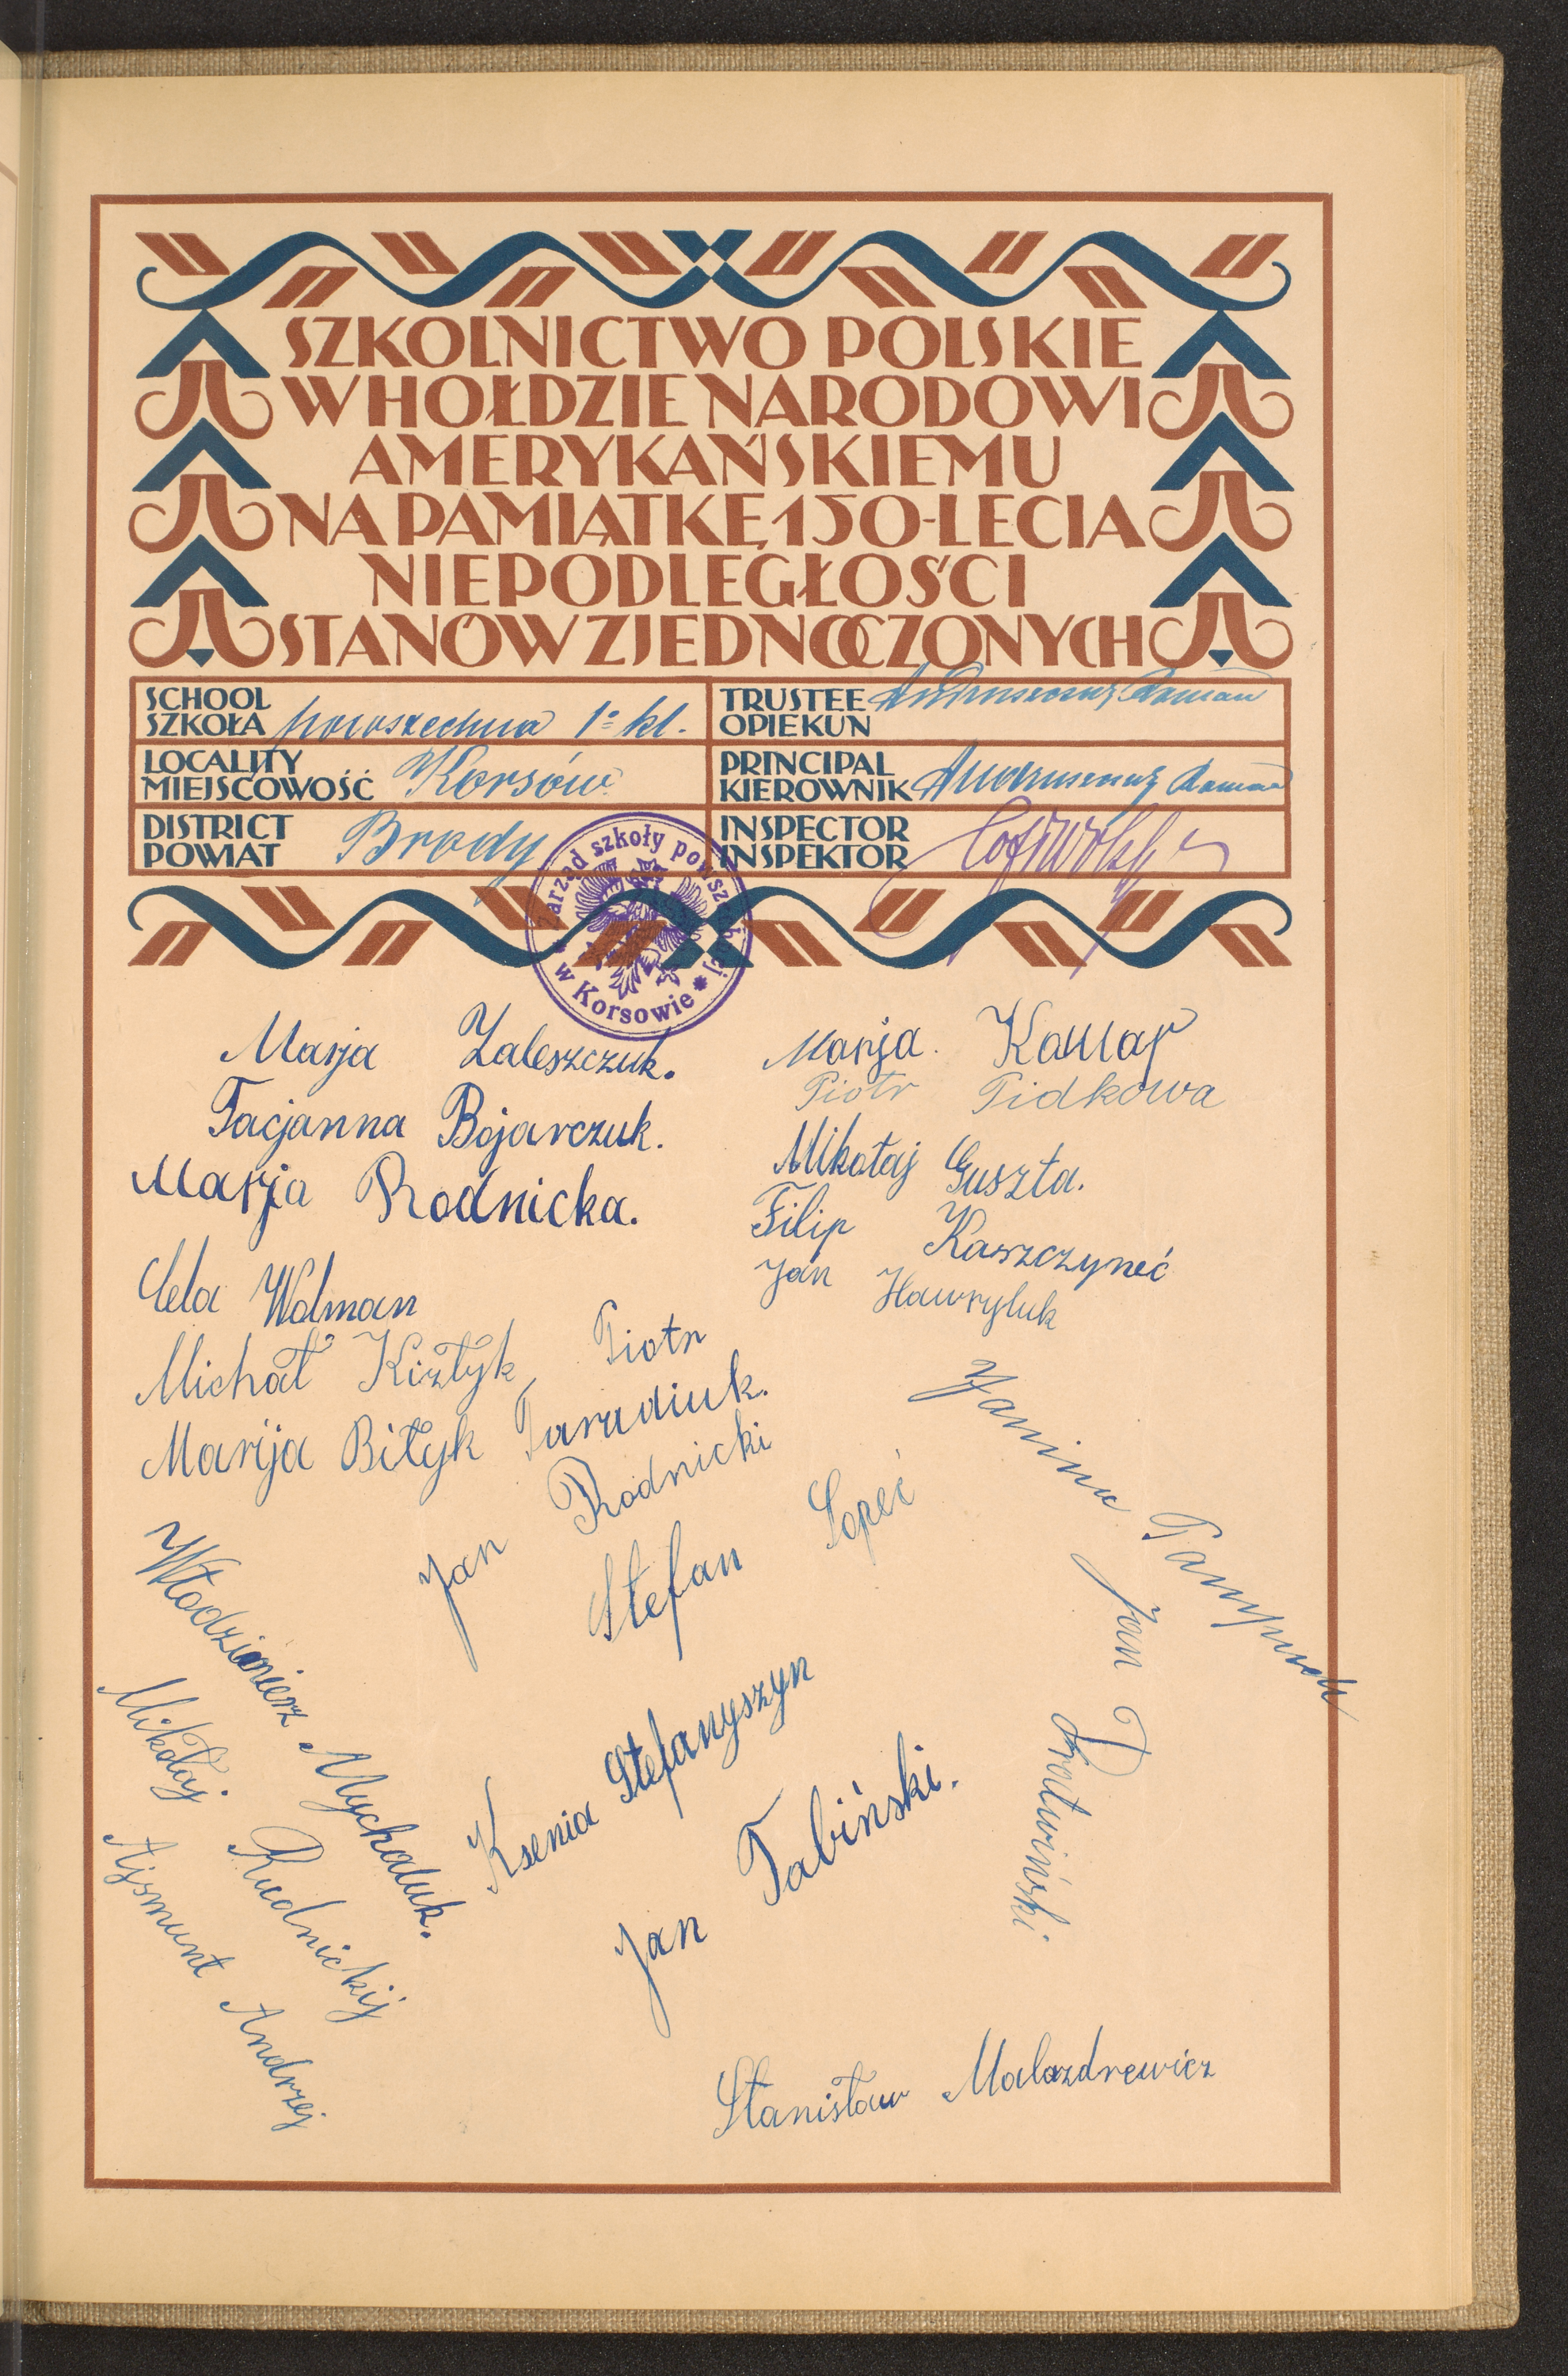 SZKOLNICTWO POLSKIE
W HOŁDZIE NARODOWI
AMERYKAŃSKIEMU
NA PAMIĄTKĘ 150-LECIA
NIEPODLEGŁOŚCI
STANÓW ZJEDNOCZONYCH
SCHOOL
SZKOŁA powszechna 1= kl.
TRUSTEE
OPIEKUN
LOCALITY
MIEJSCOWOŚĆ Korsów
PRINCIPAL
KIEROWNIK
DISTRICT
POWIAT Brody
INSPECTOR
INSPEKTOR
Zarząd szkoły powszechnej
* w Korsowie *
Marja Zaleszczuk.
Tacjanna Bojarczuk.
Marja Rodnicka.
Cela Wolman
Michał Kiztyk
Marija Biłyk
Marja Kawar
Piotr Pidkowa
Mikołaj Guszta.
Filip Kaszczyneć
Jan Hawryluk
Piotr
Taradiuk.
Jan Rodnicki
Stefan Sopeć
Janina
Jan Dratwiński.
Włodzimierz Mychaluk.
Mikołaj Rudnickij
Ajsmunt Andrzej
Ksenia Stefanyszyn
Jan Tabiński.
Stanisław Malazdrewicz